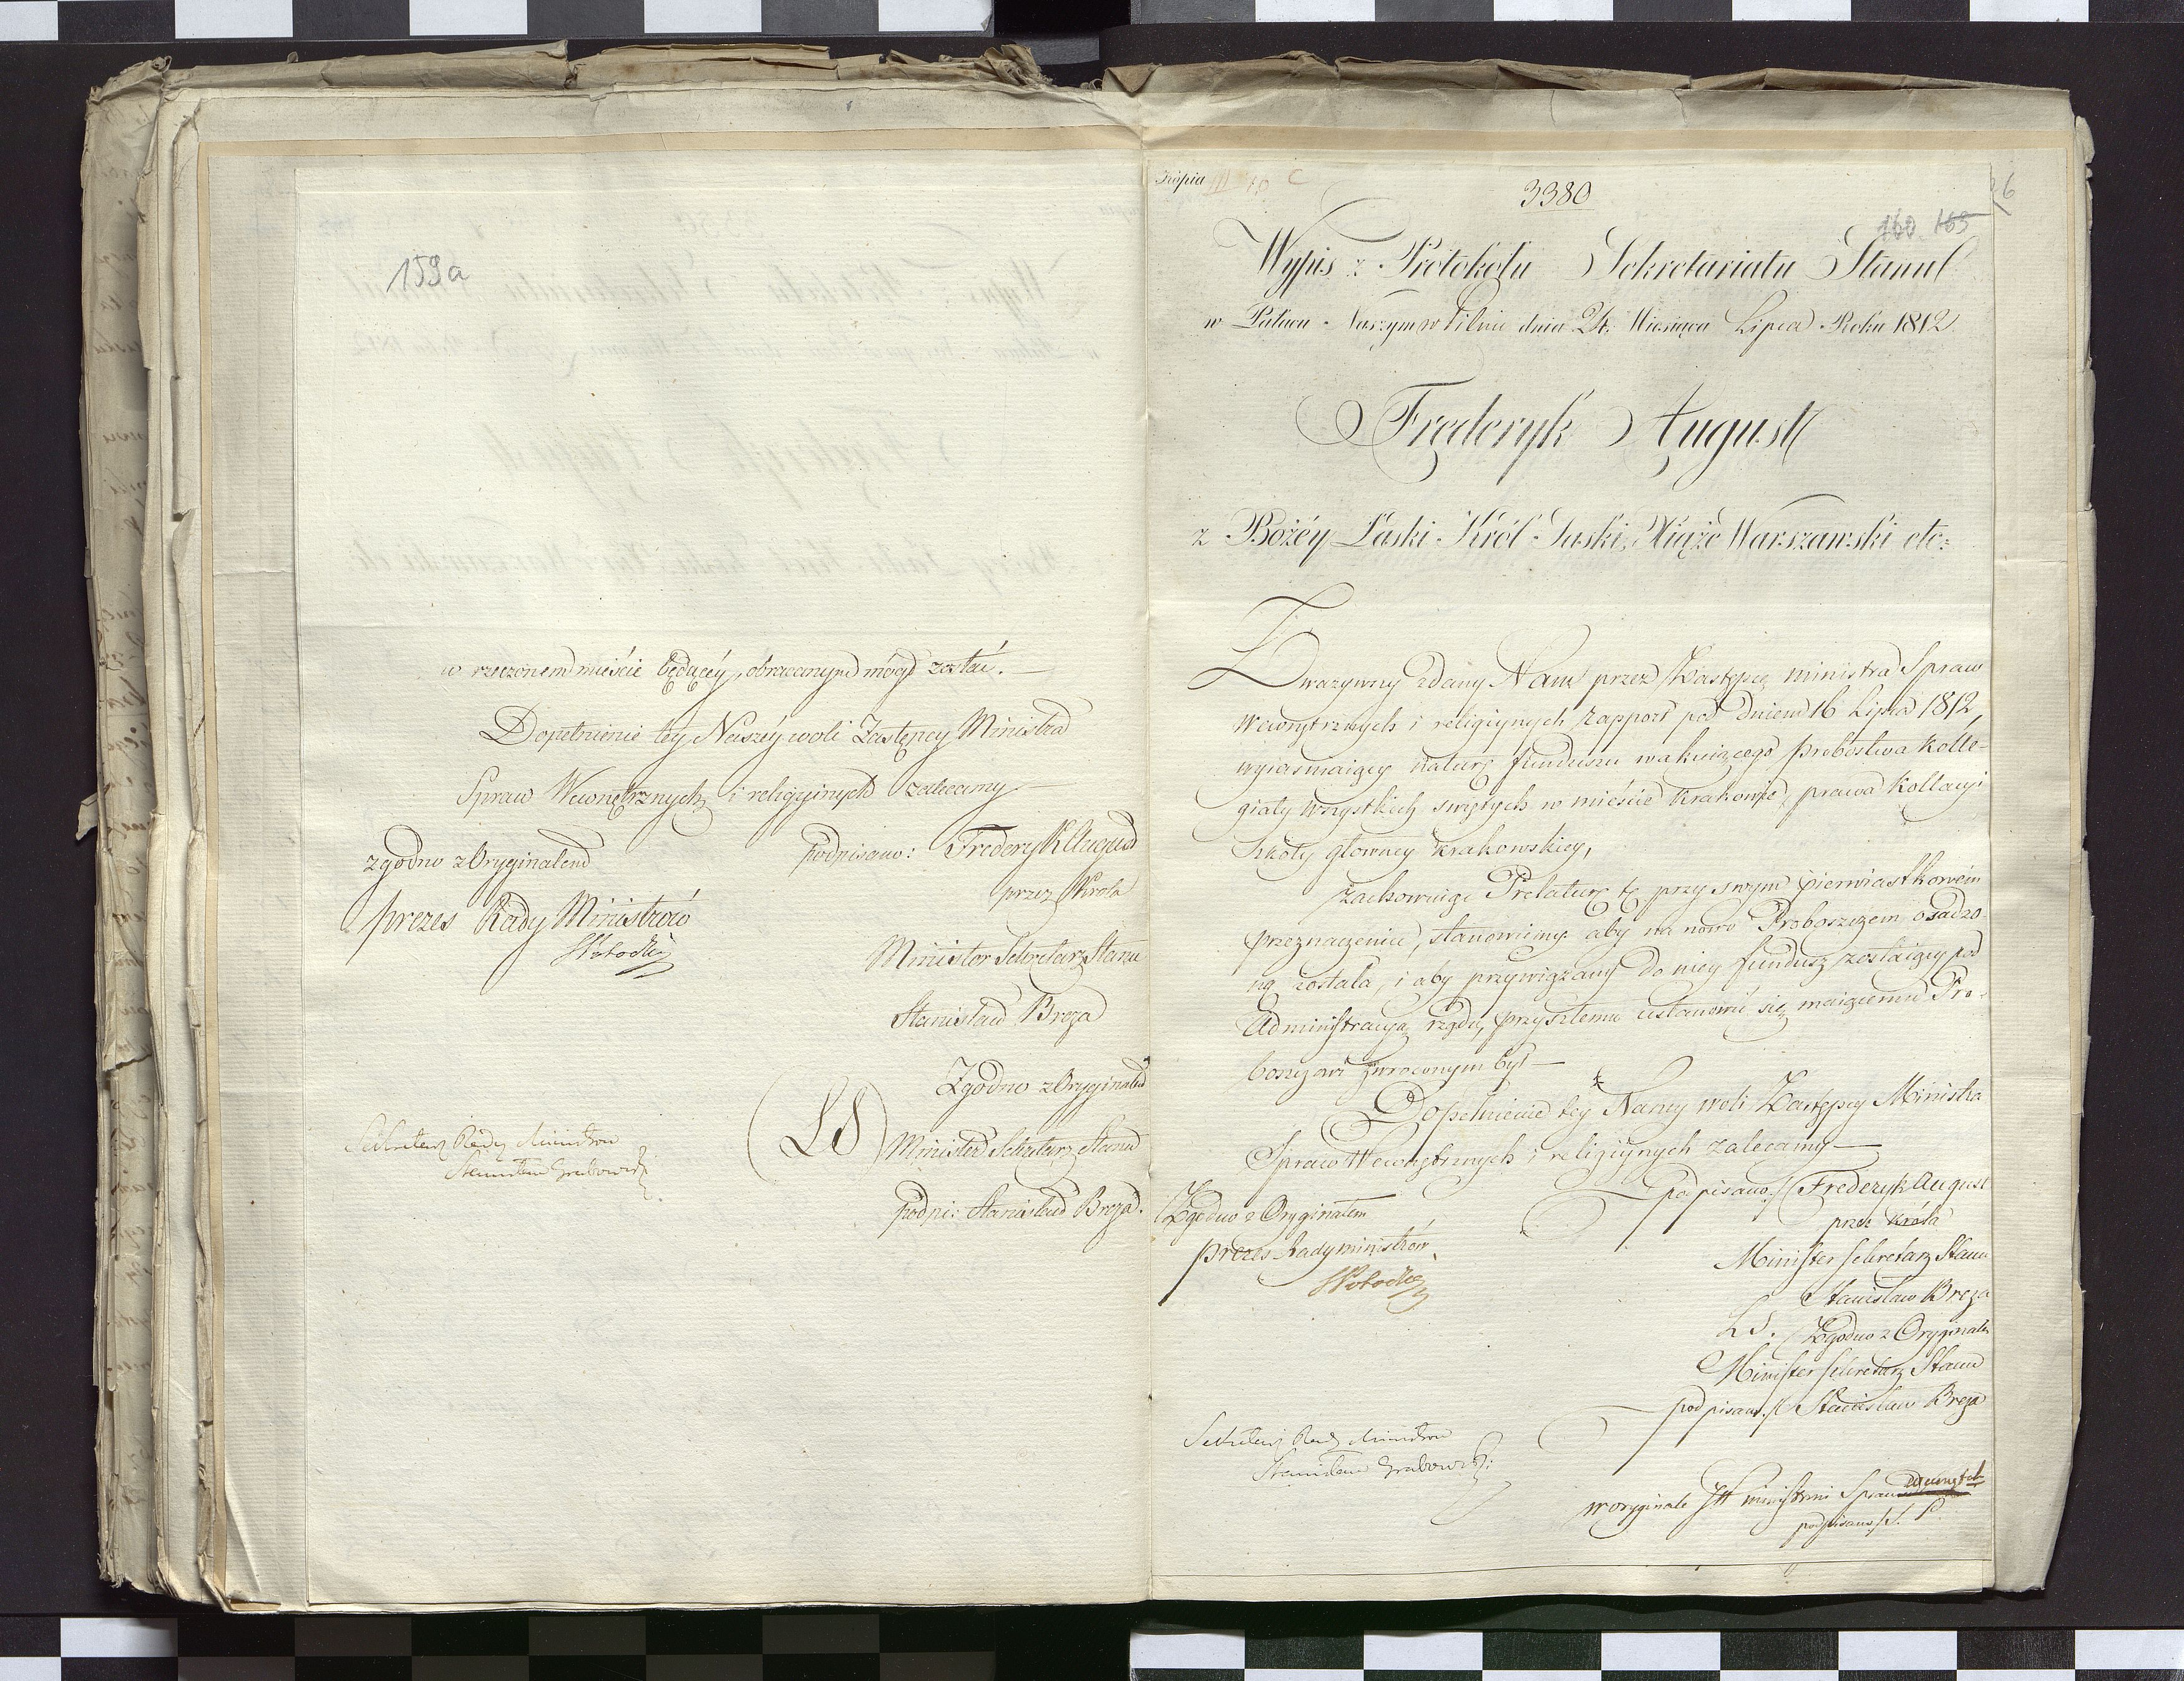 159a
w rzeczonem mieście będącéy, obróconym mógł zostać.
Dopełnienie téy Naszéy woli Zastępcy Ministra
Spraw Wewnętrznych i religyinych zalecamy
zgodno z Oryginałem
podpisano: Frederyk August
przez Krola
prezes Rady Ministrów
Minister Sekretarz Stanu
Stanisław Breza
Zgodno z Oryginałem
(LS)
Minister Sekretarz Stanu
podpi: Stanisław Breza.
Sekretarz Rady Ministrow
Stanisław Grabowski
Kopia
3380
160 165
Wypis z Protokołu Sekretariatu Stanu
w Pałacu Naszym w Pilnic dnia 24. Miesiąca Lipca Roku 1812
Frederyk August
z Bożéy Łaski Król Saski, Xiąże Warszawski etc:
Zważywszy zdany Nam przez Zastępcę ministra Spraw
wewnętrznych i religiynych rapport pod dniem 16 Lipca 1812,
wyiasniaiący naturę funduszu wakuiącego probostwa kolle-
giaty wszystkich swiętych w mieście Krakowie, prawa kollacyi
szkoły głowney krakowskiey,
Zachowuiąc Prelaturę tę przy swym pierwiastkowém
przeznaczeniu, stanowiemy: aby na nowo Proboszczem osadzo-
ną została, i aby przywiązany do niey fundusz zostaiący pod
Administracyą rządu, przyszłemu ustanowić się maiącemu Pro-
boszczowi zwroconym był —
Dopełnienie tey Naszey woli Zastępcy Ministra
Spraw Wewnętrznych i religiynych zalecamy —
podpisano/ Frederyk August
Zgodno z Oryginałem
przez króla
prezes Rady ministrów
Minister Sekretarz Stanu
Stanisław Breza
L.S. Zgodno z Oryginałem
Minister Sekretarz Stanu
podpisano/ Stanisław Breza
Sekretarz Rady Ministrow
Stanisław Grabowski
w oryginale JW ministrowi Spraw
podpisano